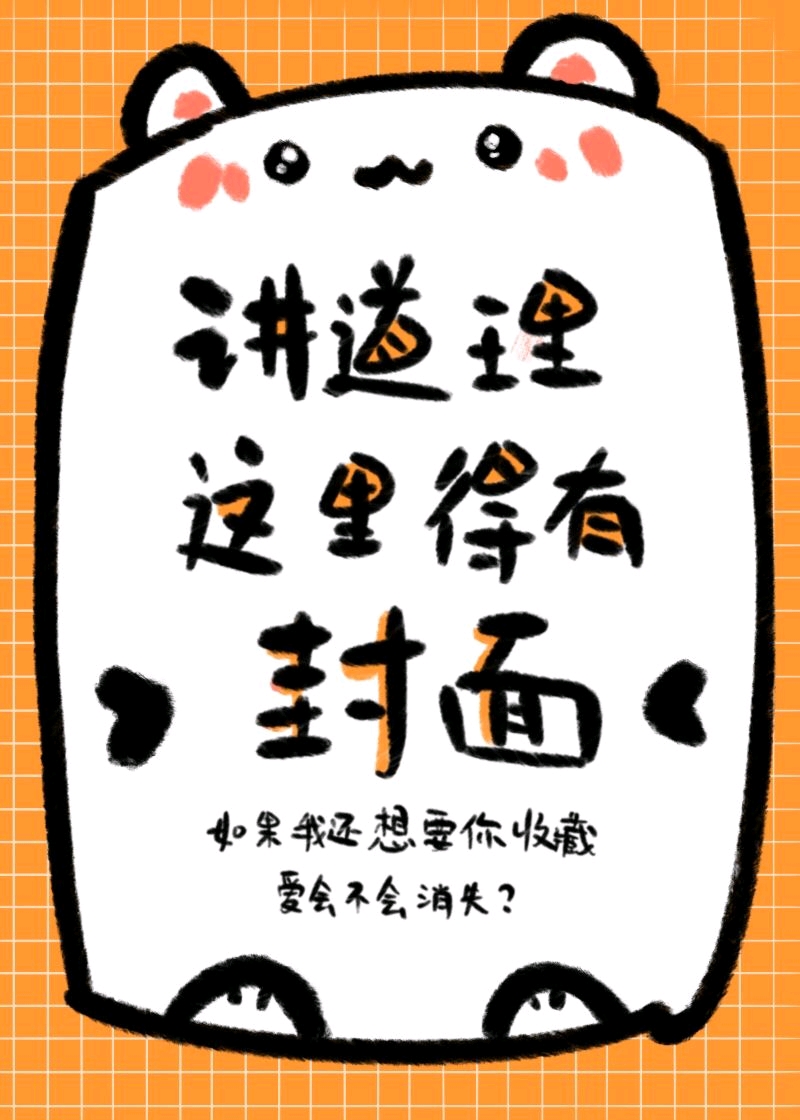 讲道理
这里得有
封面
如果我还想要你收藏
爱会不会消失？